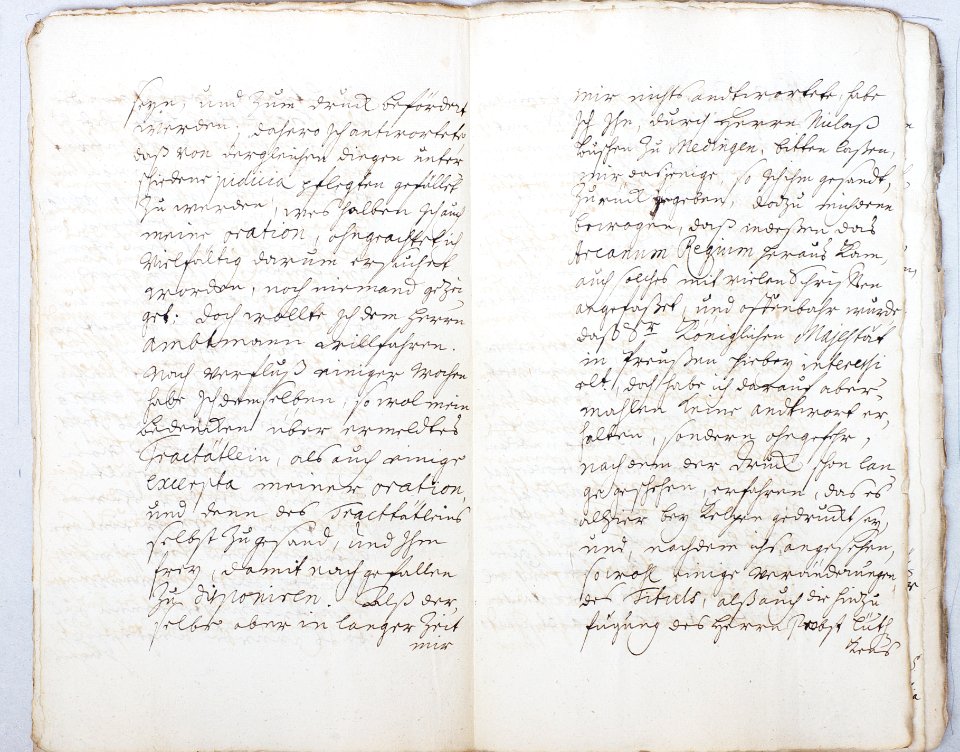 seyn, und Zum Druck befördert
werden, dahero Ich antwortete
daß von dergleichen dingen unter
schiedene judicia pflegten gefället
Zu werden, weshalben Ich auch
meine oration, ohngeachtet ich
Vielfaltig darum ersuchet
worden, noch niemand gezei
get: doch wollte Ich dem Herrn
Ambtmann willfahren.
Nach verfluß einiger Wochen
habe Ich demselben, so wol mein
bedencken über ermeldtes
Tractätlein, als auch einige
excerpta meiner oration,
und denn des Tracttätleins
selbst Zugesand, und Ihm
frey, damit nach gefallen
Zu disponiren. Alß der,
selbe aber in langer Zeit
mir
mir nichts andtwortete, habe
Ich Ihn, durch Herrn Nicolaß
Buschen Zu Medingen, bitten laßen,
mir dasjenige, so Ich ihm gesandt,
Zurück zugeben, dodzu
bewogen, daß indeßen das
Arcanum Regium heraus kam,
auch solches mit vielen Schrifften
angefaßet, und offenbahr wurde
daß Sr Königlichen Majestät
in Preussen hiebey interessi
ret, doch habe ich darauf aber-
mahlen keine andtwort er,
halten, sondern ohngefehr,
nach dem der Druck schon lan
ge geschehen, erfahren, das es
alhier bey Kelpen gedruckt sey,
und, nachdem ichs angesehen,
sowohl einige veränderungen
des Tituls, alß auch die hinzu
fügung des Herrn Probst Lüth
kens